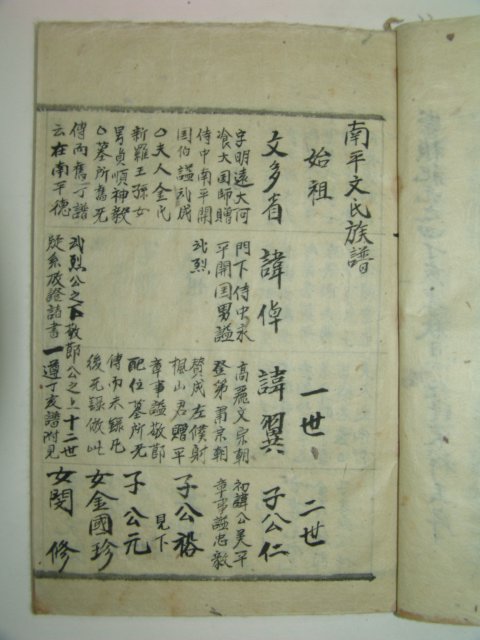 南平文氏族譜
始祖
一世
二世
文多省
字明遠大
食大国師贈
侍中南平開
国伯謚武成
○夫人金氏
新羅王孫女
男貞順神毅
○墓所舊无
傳而舊丁譜
云在南平德
諱倬
門下侍中
平開国男謚
武烈
武烈公之下敬節公之上十二世
疑系及證詰書一遵丁亥譜附見
諱翼
高麗文宗朝
登第肅宗朝
贊成左僕射
楓山君贈平
章事謚敬節
配位墓所无
傳而未錄凡
後无錄倣此
子公仁
初諱公美平
章事謚忠毅
子公裕
見下
子公元
女金國珍
女閔修